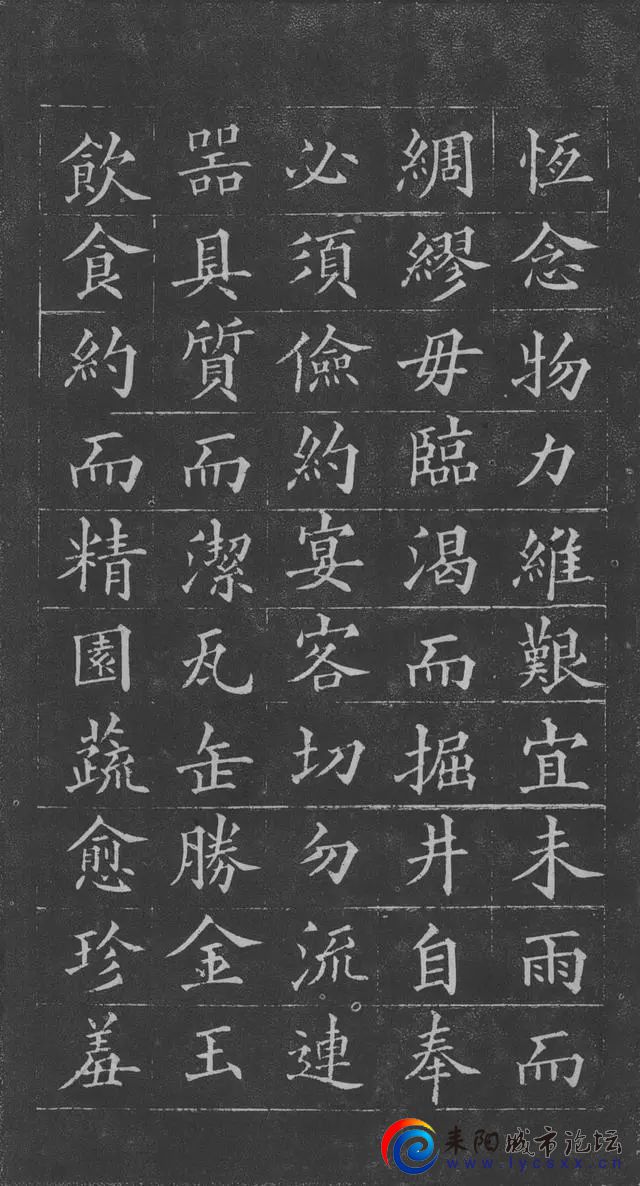 恆念物力維艱宜未雨而
綢繆毋臨渴而掘井自奉
必須儉約宴客切勿流連
器具質而潔瓦缶勝金玉
飲食約而精園蔬愈珍羞
耒阳城市论坛
www.lycsxx.cn